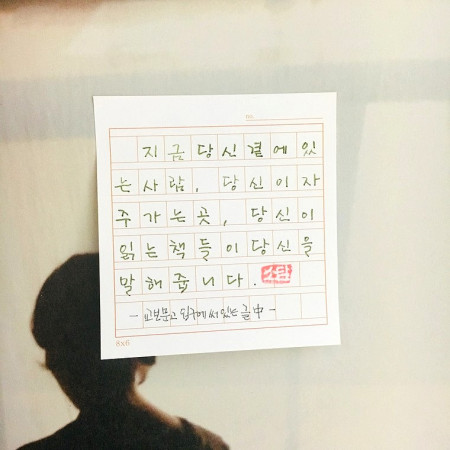 No.
지금 당신 곁에 있
는 사람, 당신이 자
주 가는 곳, 당신이
읽는 책들이 당신을
말해줍니다. 소담
- 교보문고 입구에 써 있는 글 中 -
8x6